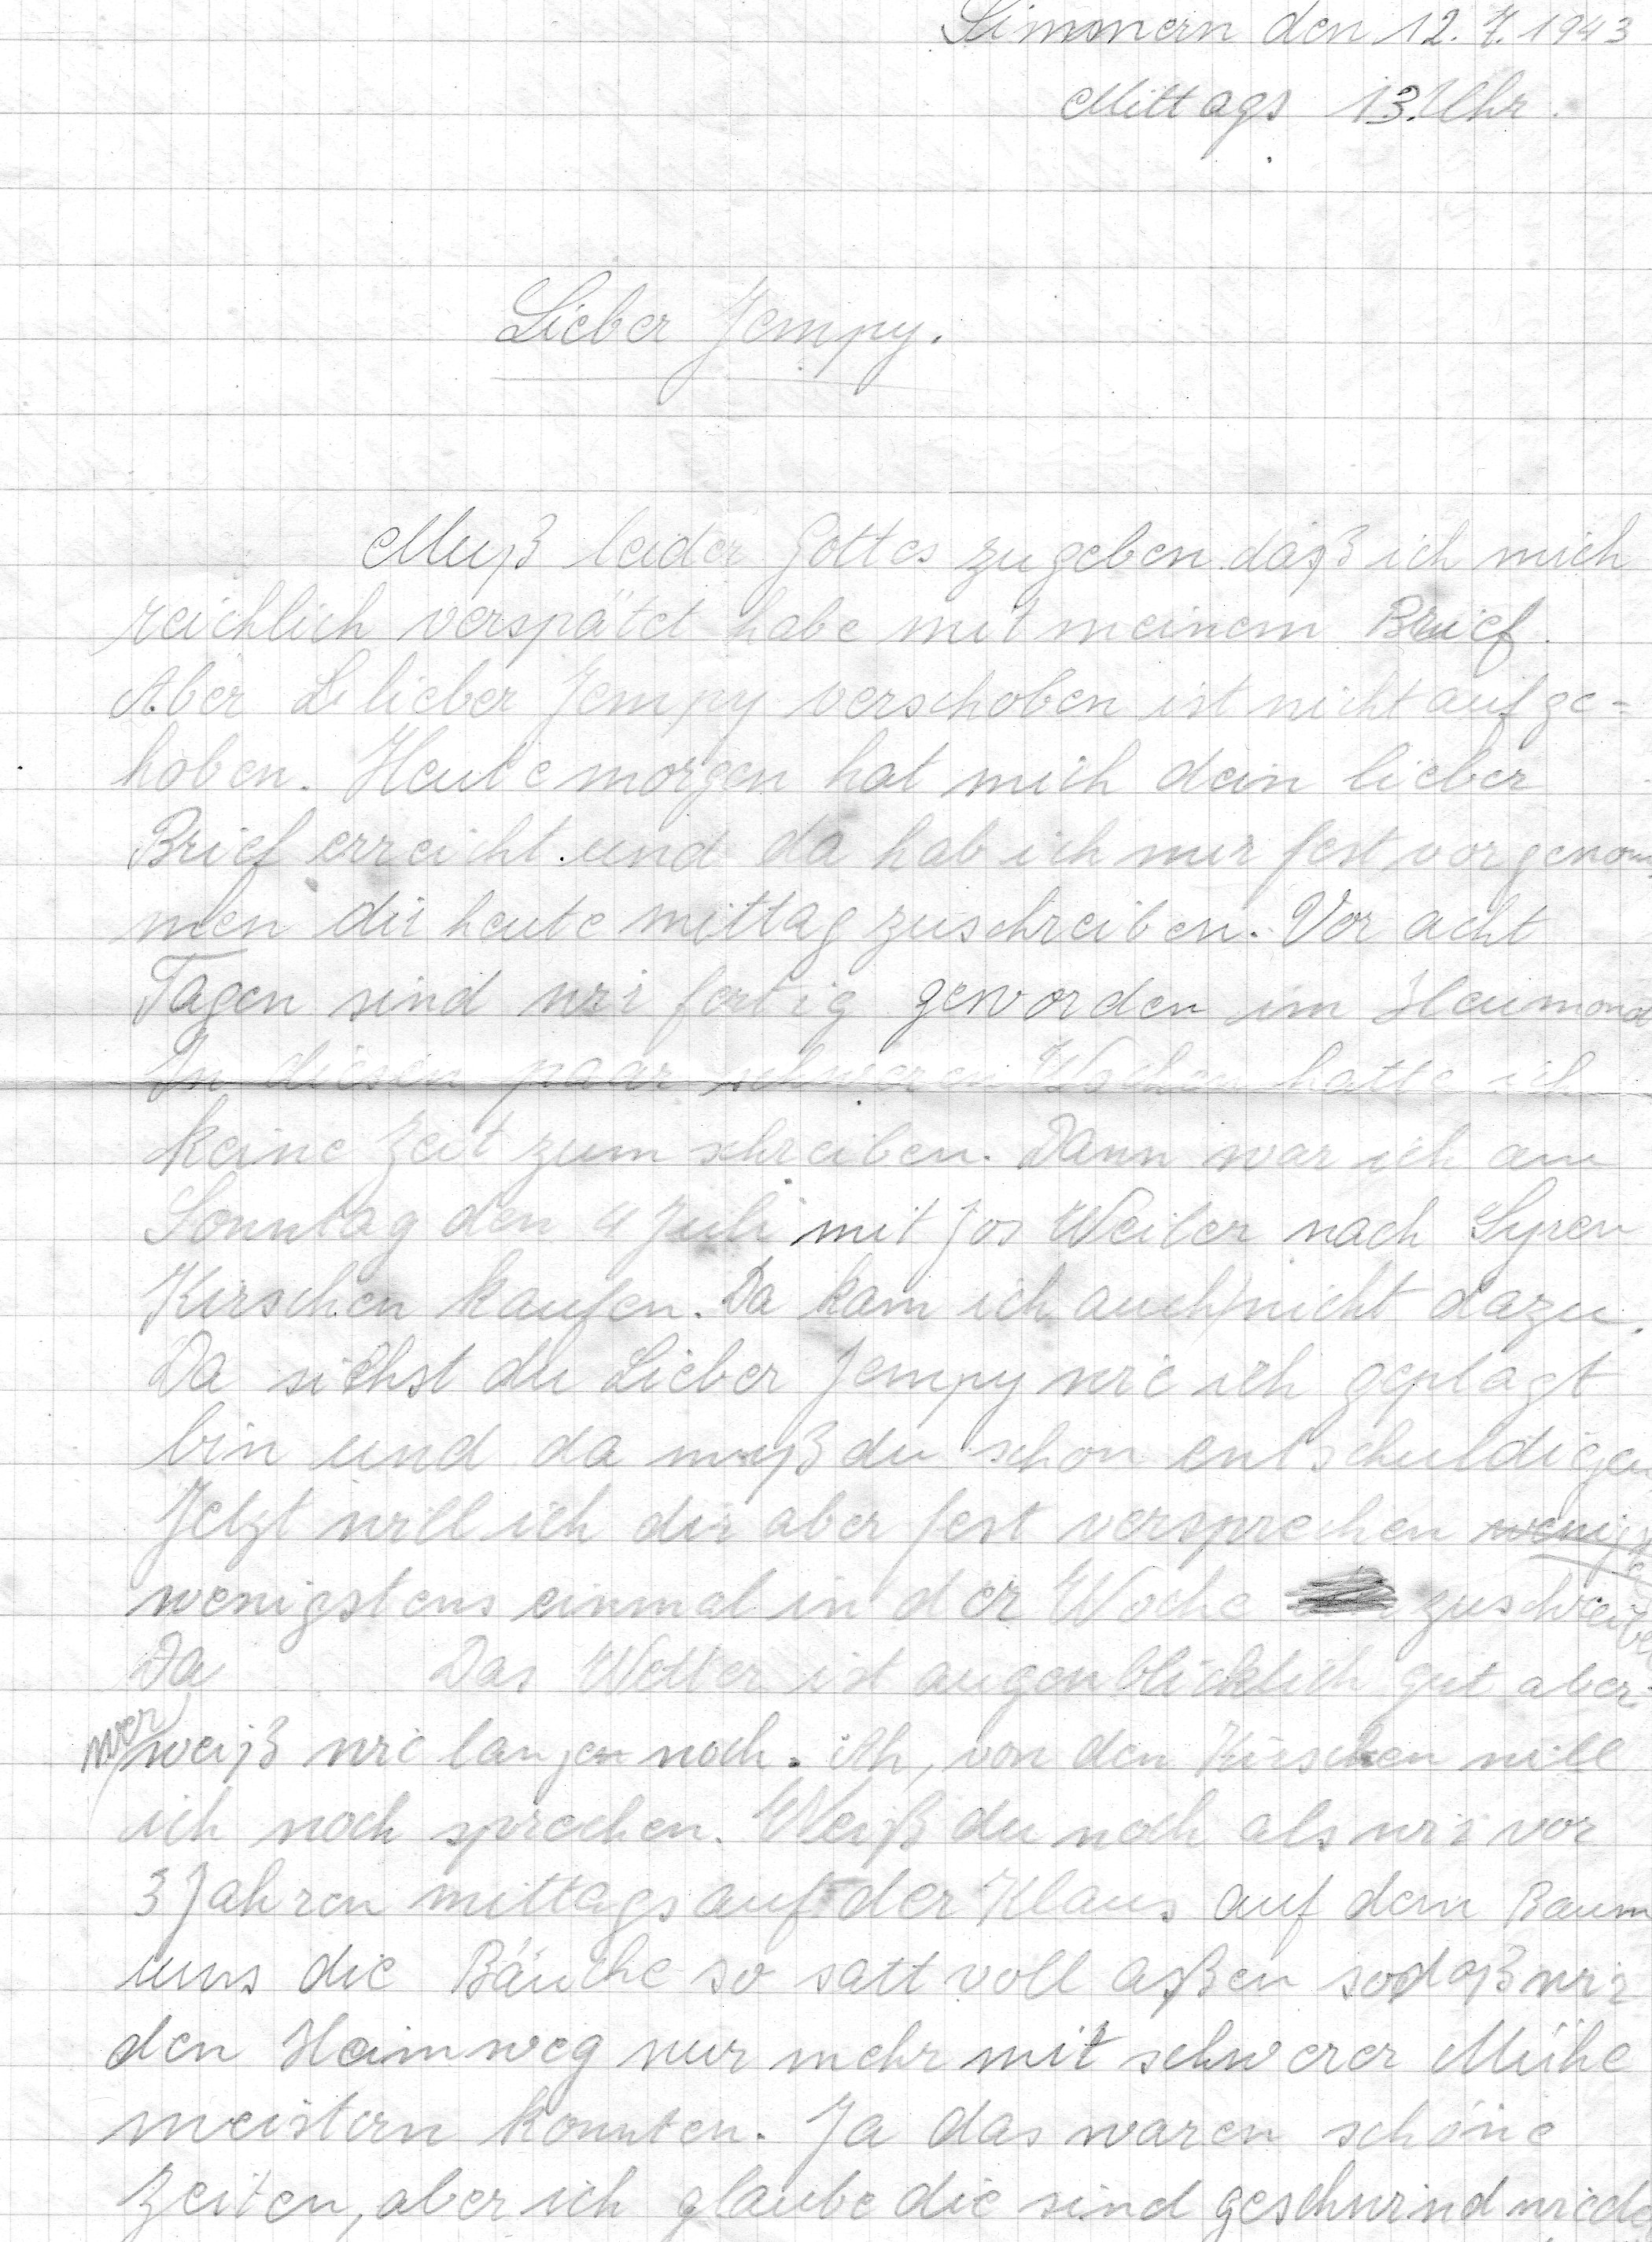 Simmern den 12. 7. 1943
Mittags 13. Uhr.
Lieber Jempy.
Muß leider Gottes zugeben daß ich mich
reichlich verspätet habe mit meinem Brief.
Aber lieber Jempy verschoben ist nicht aufge=
hoben. Heute morgen hat mich dein lieber
Brief erreicht und da hab ich mir fest vorgenom
men dir heute mittag zuschreiben. Vor acht
Tagen sind wir fertig geworden im Heumonat
In diesen paar schweren Wochen hatte ich
keine Zeit zum schreiben. Dann war ich am
Sonntag den 4 Juli mit Jos Weiler nach Syren
Kirschen kaufen. Da kam ich auch nicht dazu.
Da siehst du Lieber Jempy wie ich geplagt
bin und da muß du schon entschuldigen
Jetzt will ich dir aber fest versprechen
wenigstens einmal in der Woche zuschreiben
Da Das Wetter ist augenblicklich gut aber
wer weiß wie lange noch. Ah, von den Kirschen will
ich noch sprechen. Weiß du noch als wir vor
3 Jahren mittags auf der Klaus auf dem Baum
uns die Bäuche so satt voll aßen sodaß wir
den Heimweg nur mehr mit schwerer Mühe
meistern konnten. Ja das waren schöne
Zeiten, aber ich glaube die sind geschwind wieder